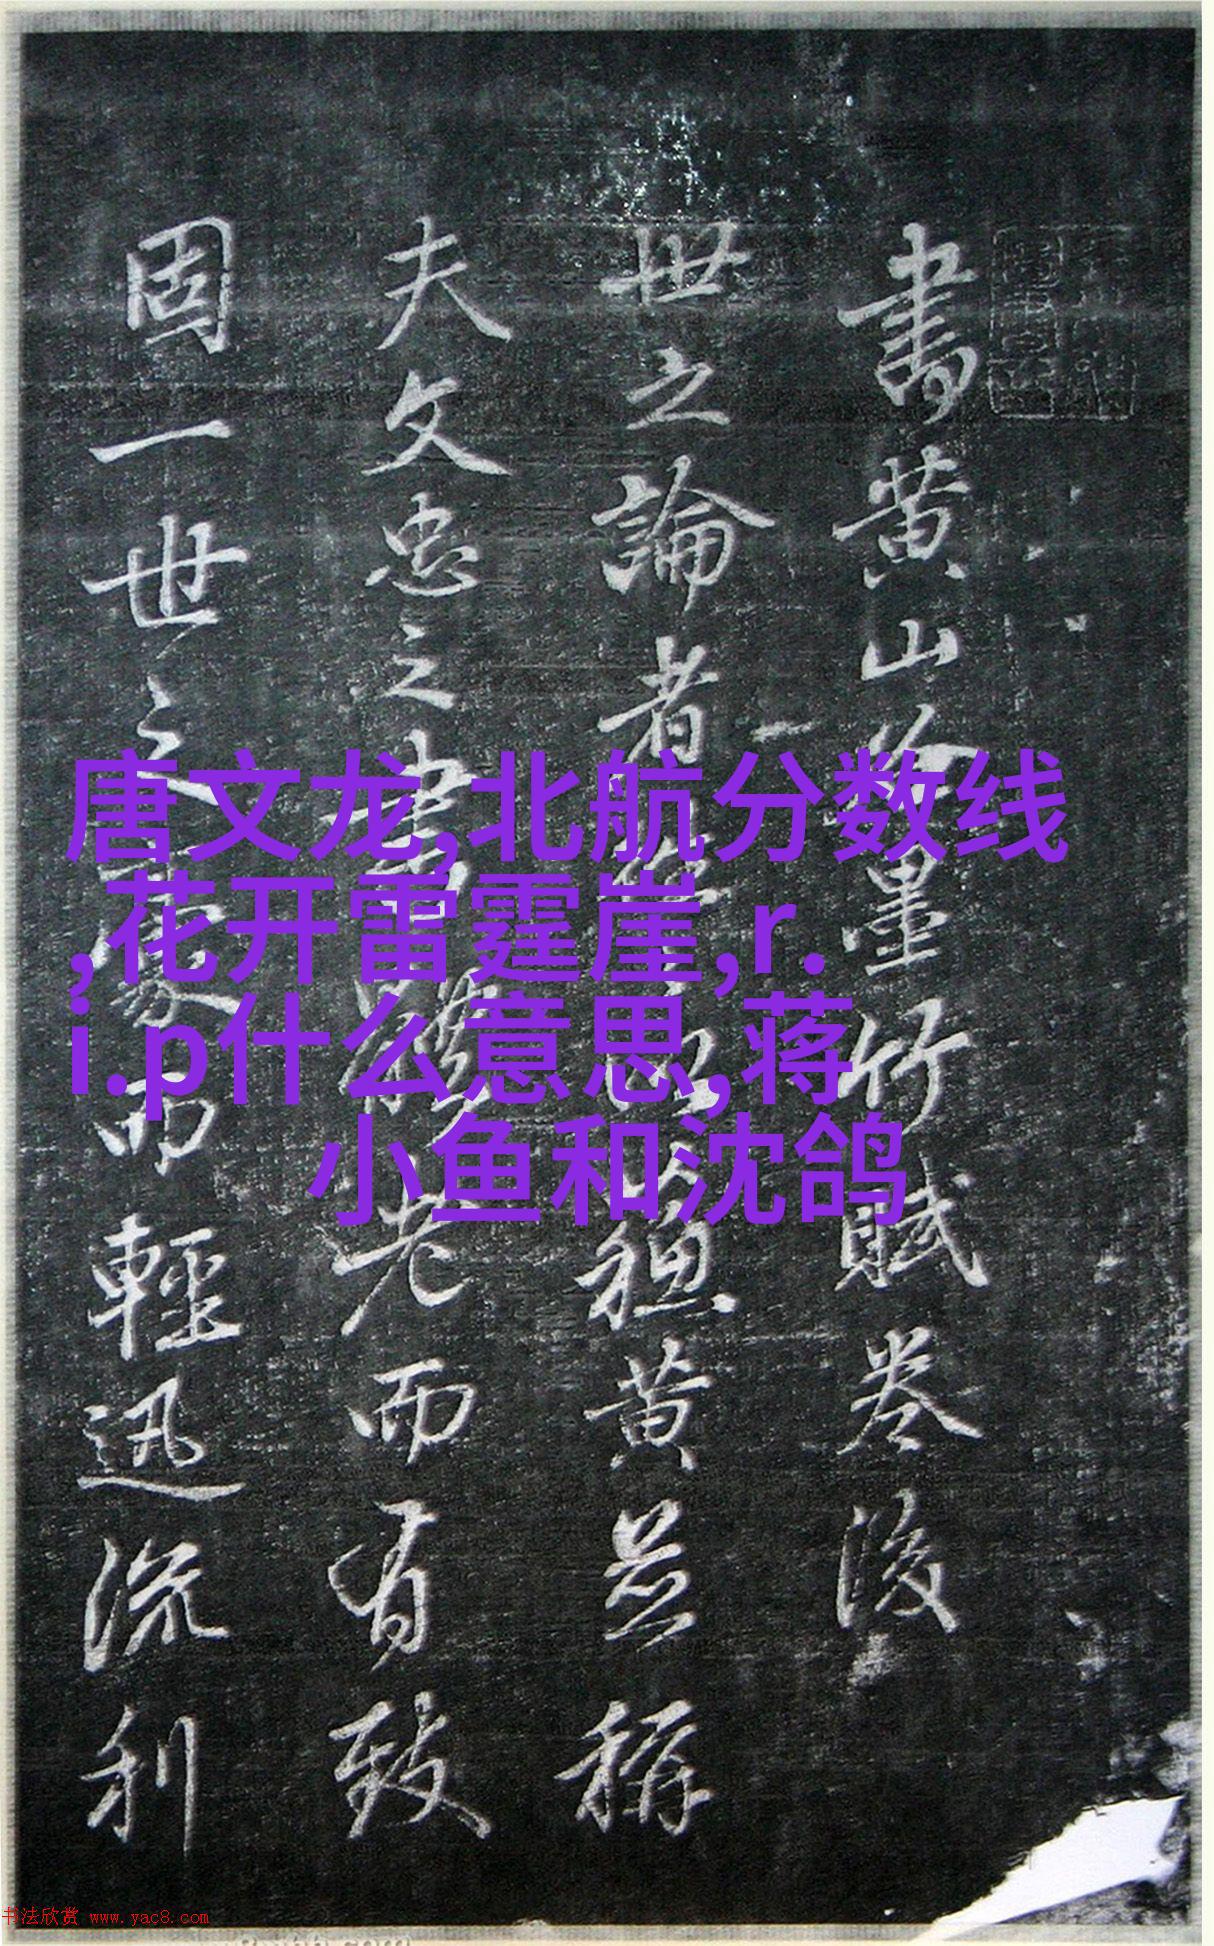 書黄山谷墨竹賦卷後
世之論者黄並稱
夫文忠之書體老而有致
固一世之豪而輕迅流利
唐文龙,北航分数线
,花开雷霆崖,r.
i.p什么意思,蒋
小鱼和沈鸽
书法欣赏 www.yac8.com